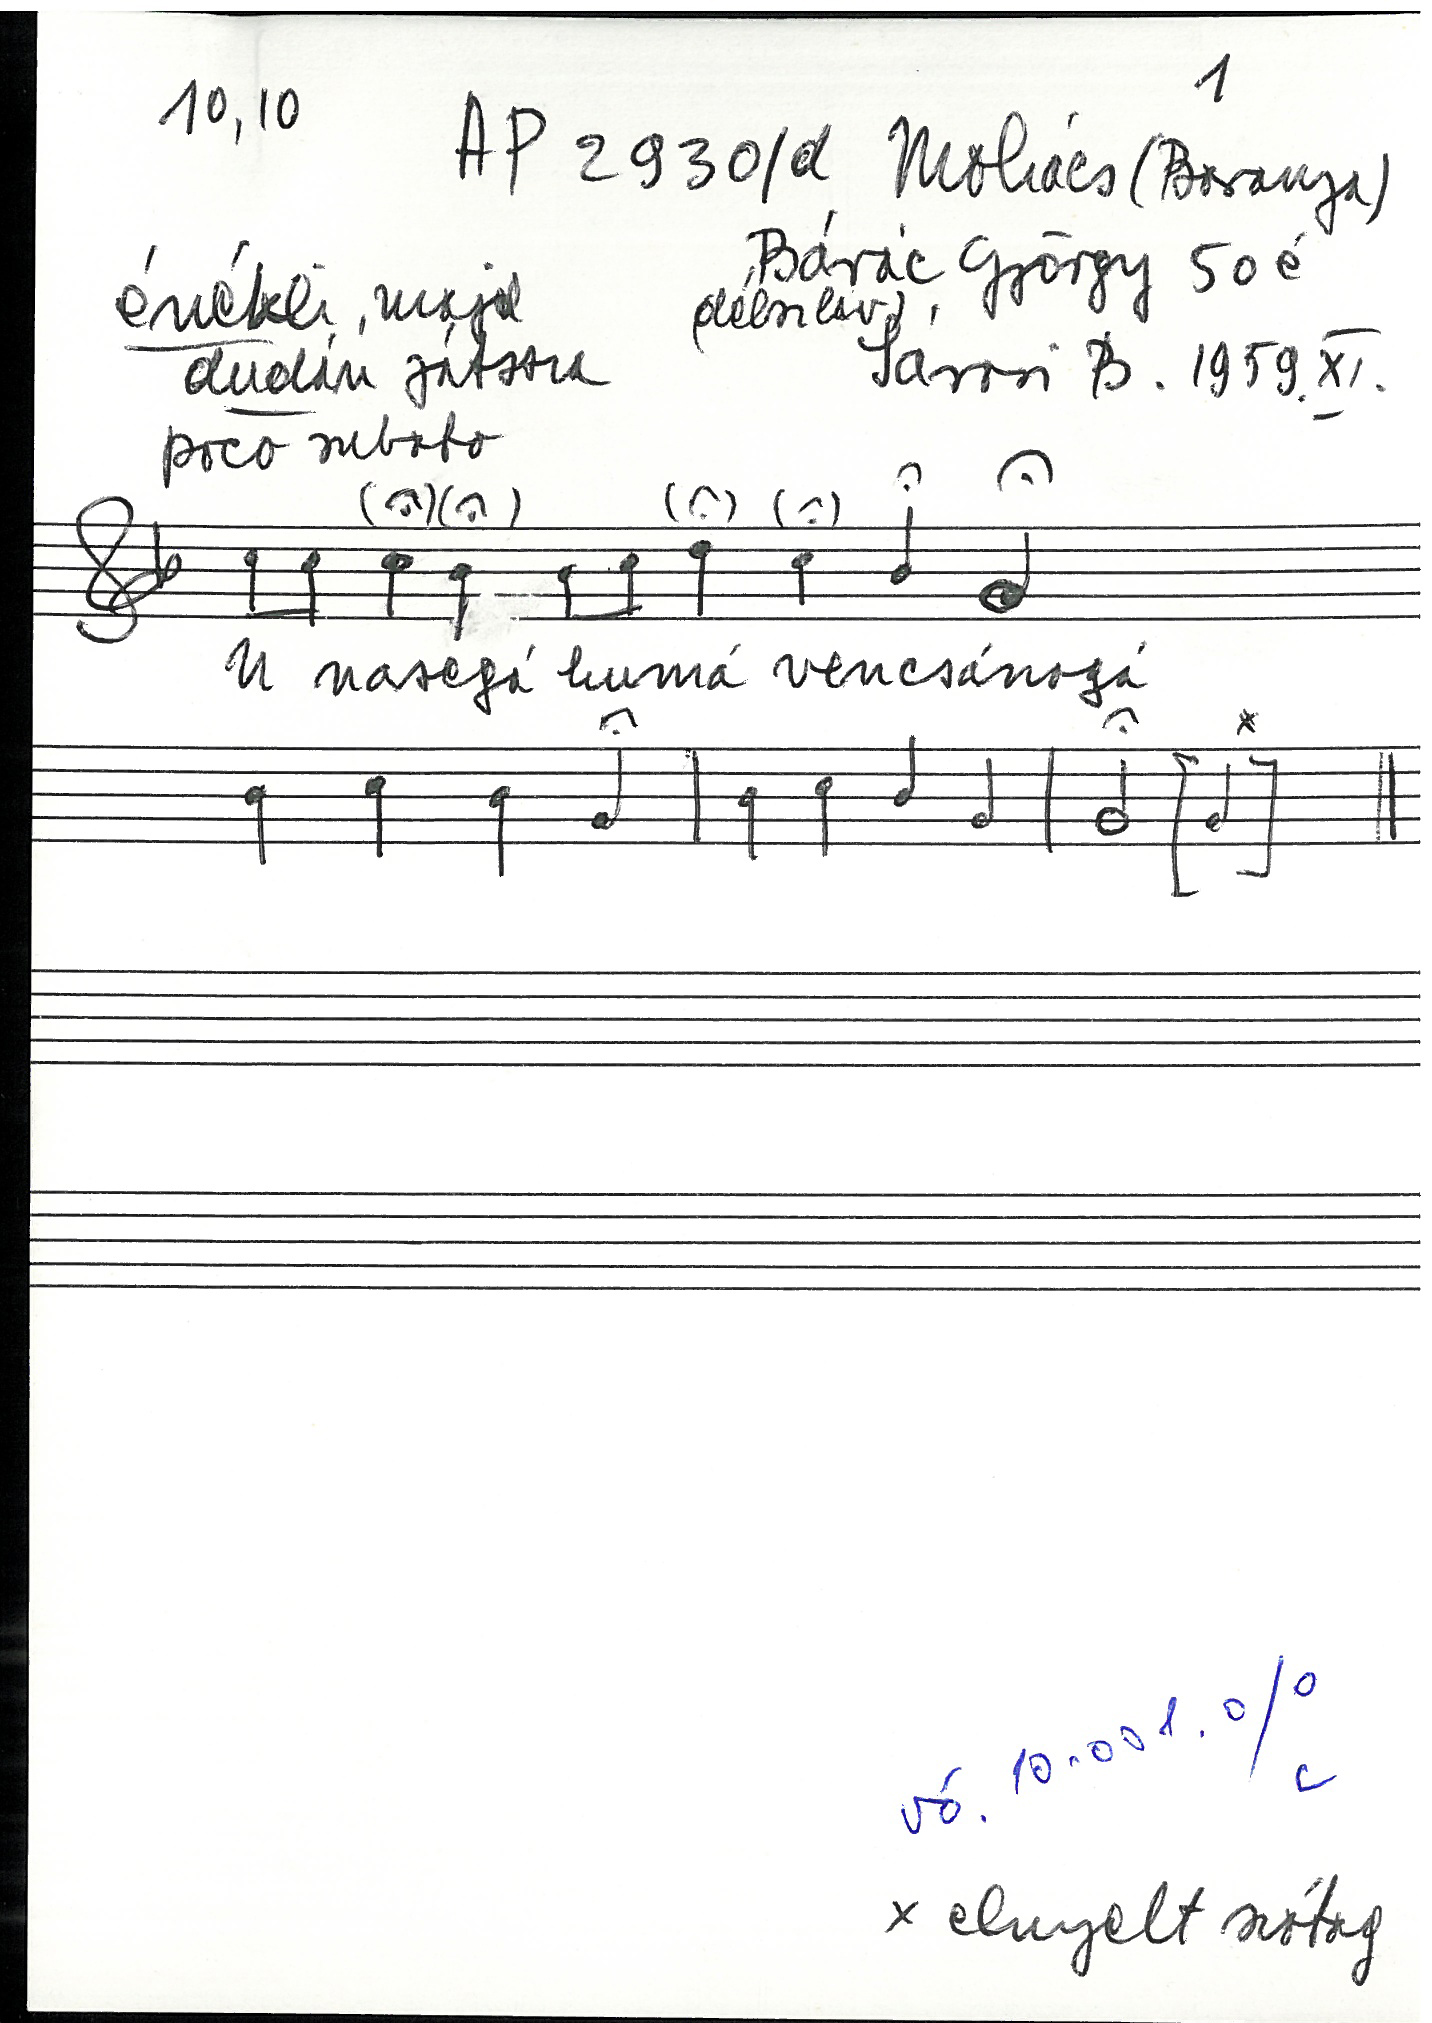 1
10,10
AP 2930/d Mohács (Baranya)
Bárác György 50 é
énekli, majd (délszláv),
dudán játssza Sárosi B. 1959. XI.
poco rubato
U nasegá kumá vencsánogá
vö. 10.001.0/0
c
x elnyelt szótag